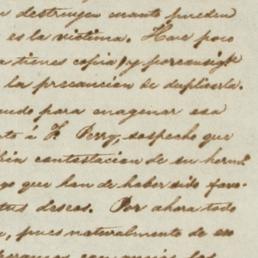 a destruyen cuanto pueden
es la víctima. Hace poco
a tienes copia, y por consig
la precaucion de duplicarla.
ando para enagenar esa
á F. Perry, sospecho que
contestacion de su herm.
go que han de haber sido favo-
tus deseos. Por ahora todo
pues naturalmente de eso